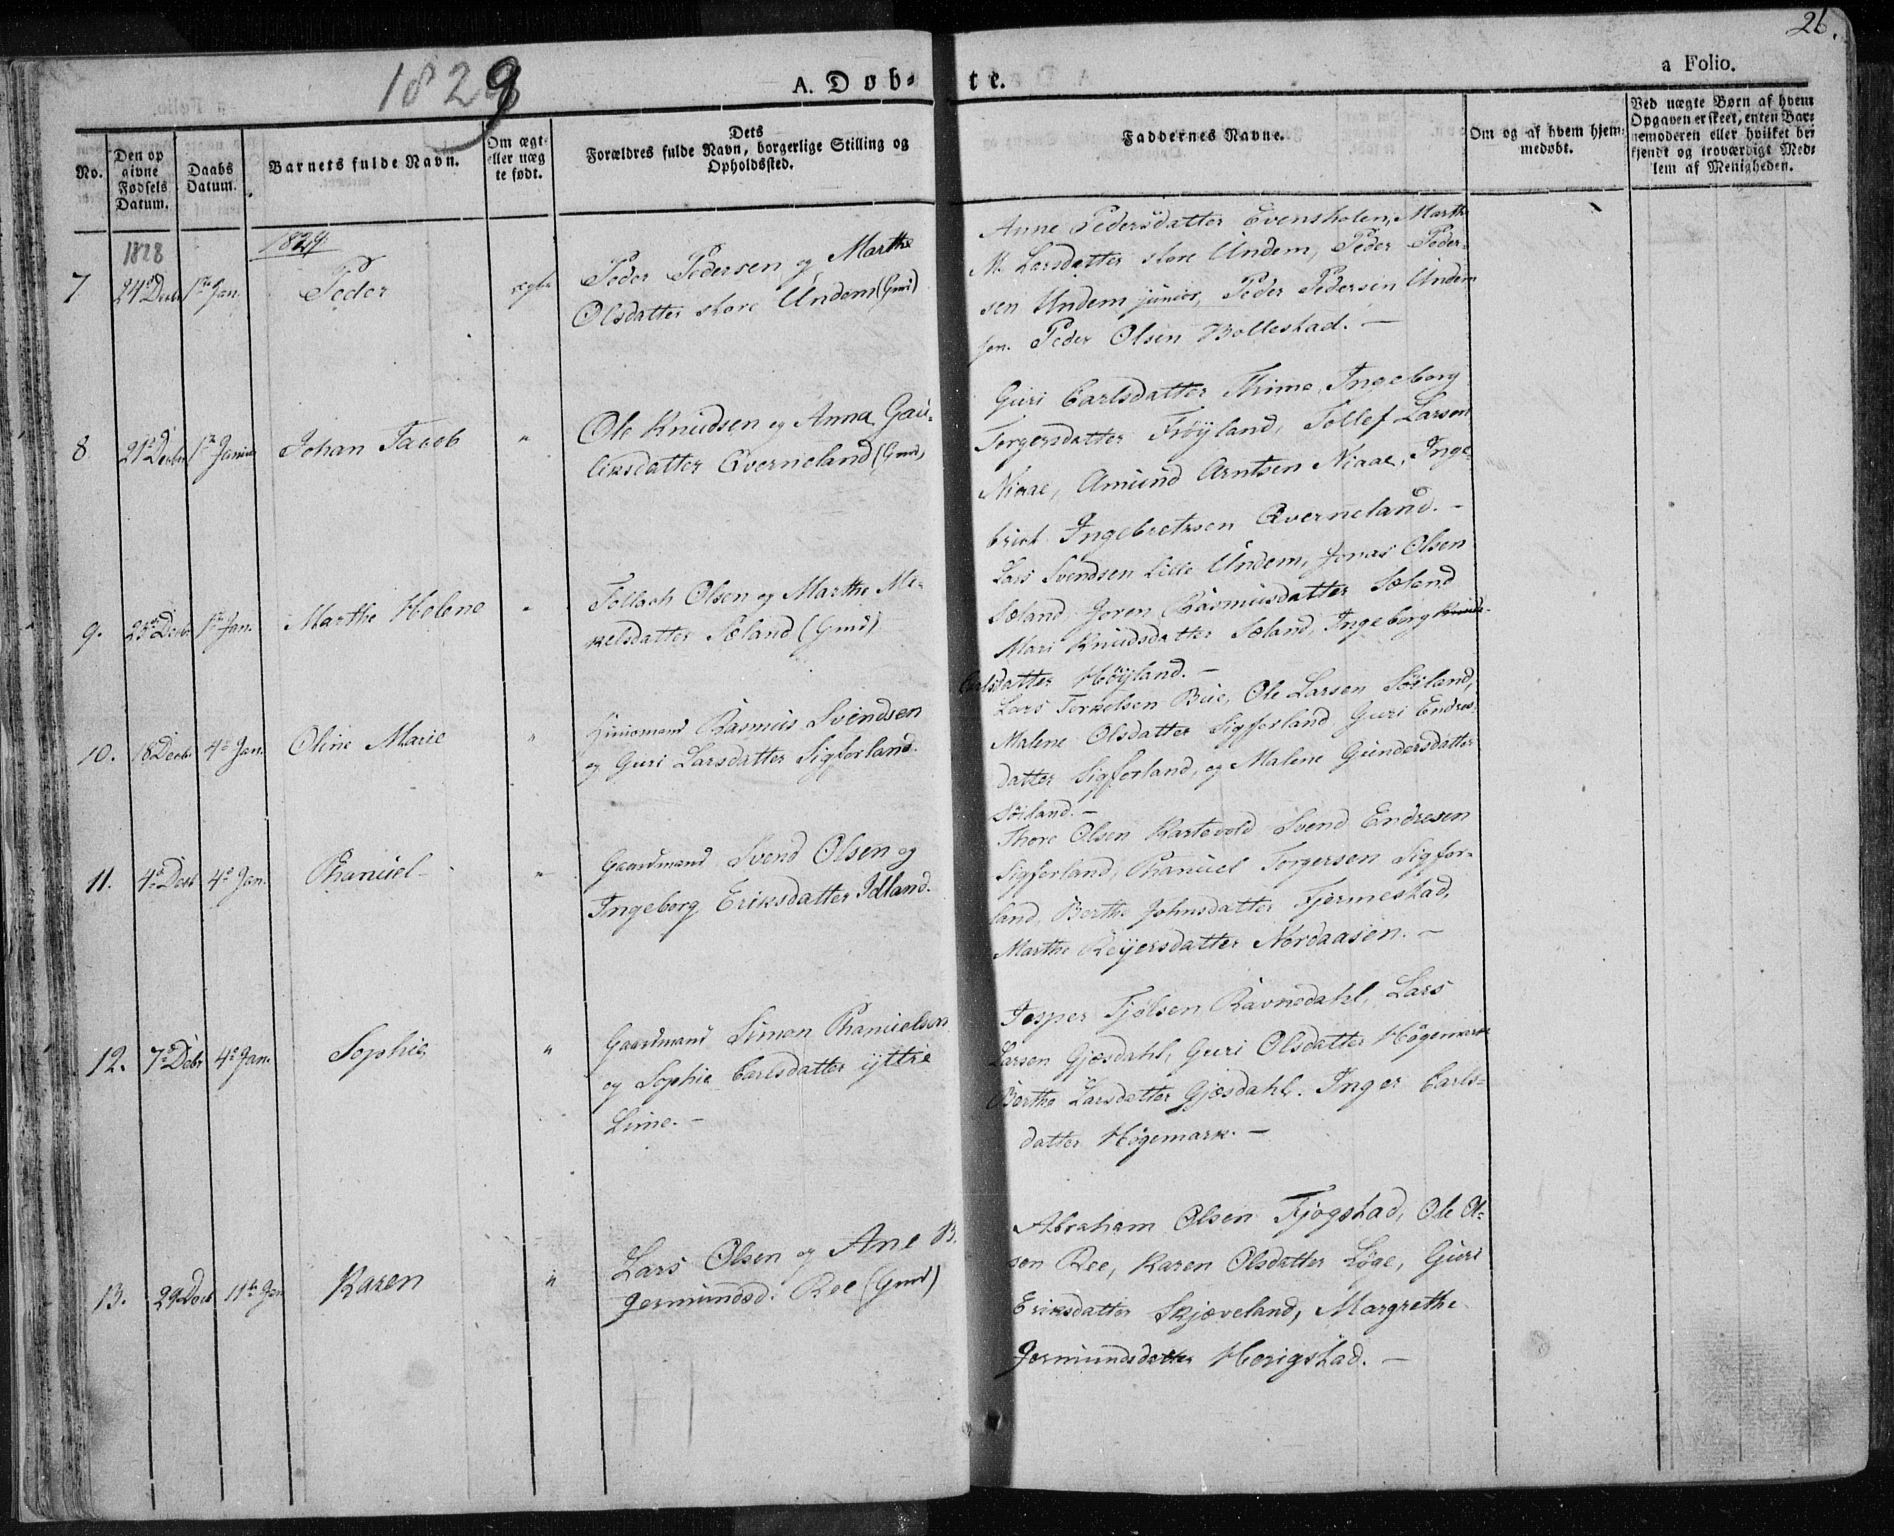 26.
1829
A. Døb-
te.
a Folio.
No.
Den op
givne
Fødsels
Datum.
Daabs
Datum.
Barnets fulde Navn.
Om ægt-
eller uæg
te født.
Dets
Forældres fulde Navn, borgerlige Stilling og
Opholdssted.
Faddernes Navne.
Om og af hvem hjem-
medøbt.
Ved uægte Børn af hvem
Opgaven er skeet, enten Bar-
nemoderen eller hvilket be-
kjendt og troværdigt Med-
lem af Menigheden.
1828
1829
7
24de Decbr
1ste Jan.
Peder
ægte
Peder Pedersen og Marthe
Olsdatter store Undem (Gmd)
Anne Pedersdatter Evensholen, Marthe
M. Larsdatter store Undem, Peder Peder-
sen Undem junior, Peder Pedersen Undem
sen. Peder Olsen Bollestad. —
8
21de Decbr
Johan Jacob
"
Ole Knudsen og Anna Gau-
liksdatter Qverneland (Gmd)
Guri Carlsdatter Thime, Ingeborg
Torgersdatter Frøyland, Tollef Larsen
Niaae, Amund Arntsen Niaae, Inge-
brict Ingebretsen Qverneland. -
9.
25de Decbr
1ste Jan.
Marthe Helene
"
Tollach Olsen og Marthe Mi-
kelsdatter Sæland (Gmd)
Lars Svendsen Lille Undem, Jonas Olsen
Sæland, Joren Rasmusdatter Sæland
Mari Knudsdatter Sæland, Ingeborg
Carlsdatter Høyland. —
10.
18 Decbr.
4de Jan.
Oline Marie
"
Huusmand Rasmus Svendsen
og Guri Larsdatter Sigforland.
Lars Terkelsen Bue, Ole Larsen Söiland,
Malene Olsdatter Sigforland, Guri Endres-
datter Sigforland, og Malene Gundersdatter
Söiland. —
11.
4de Decb
4de Jan.
Phanuel
"
Gaardmand Svend Olsen og
Ingeborg Eriksdatter Idland.
Thore Olsen Kartevold Svend Endresen
Sigforland, Phanuel Torgersen Sigfor-
land, Berthe Johnsdatter Fjermestad,
Marthe Reijersdatter Nordaasen. —
12.
7de Decbr
4de Jan.
Sophie
"
Gaardmand Simon Phanuelsen
og Sophie Carlsdatter yttre
Lime. —
Jesper Fjølsen Ravnedahl, Lars
Larsen Gjæsdahl, Guri Olsdatter Høgemark
Berthe Larsdatter Gjæsdahl. Inger Carls-
datter Høgemark. —
13.
29 Decb
11te Jan
Karen
"
Lars Olsen og Ane B.
Jermundsd. Ree (Gmd)
Abraham Olsen Fjøgstad, Ole Ol-
sen Ree, Karen Olsdatter Løge, Guri
Eriksdatter Skjæveland, Margrethe
Jermundsdatter Horigstad. —